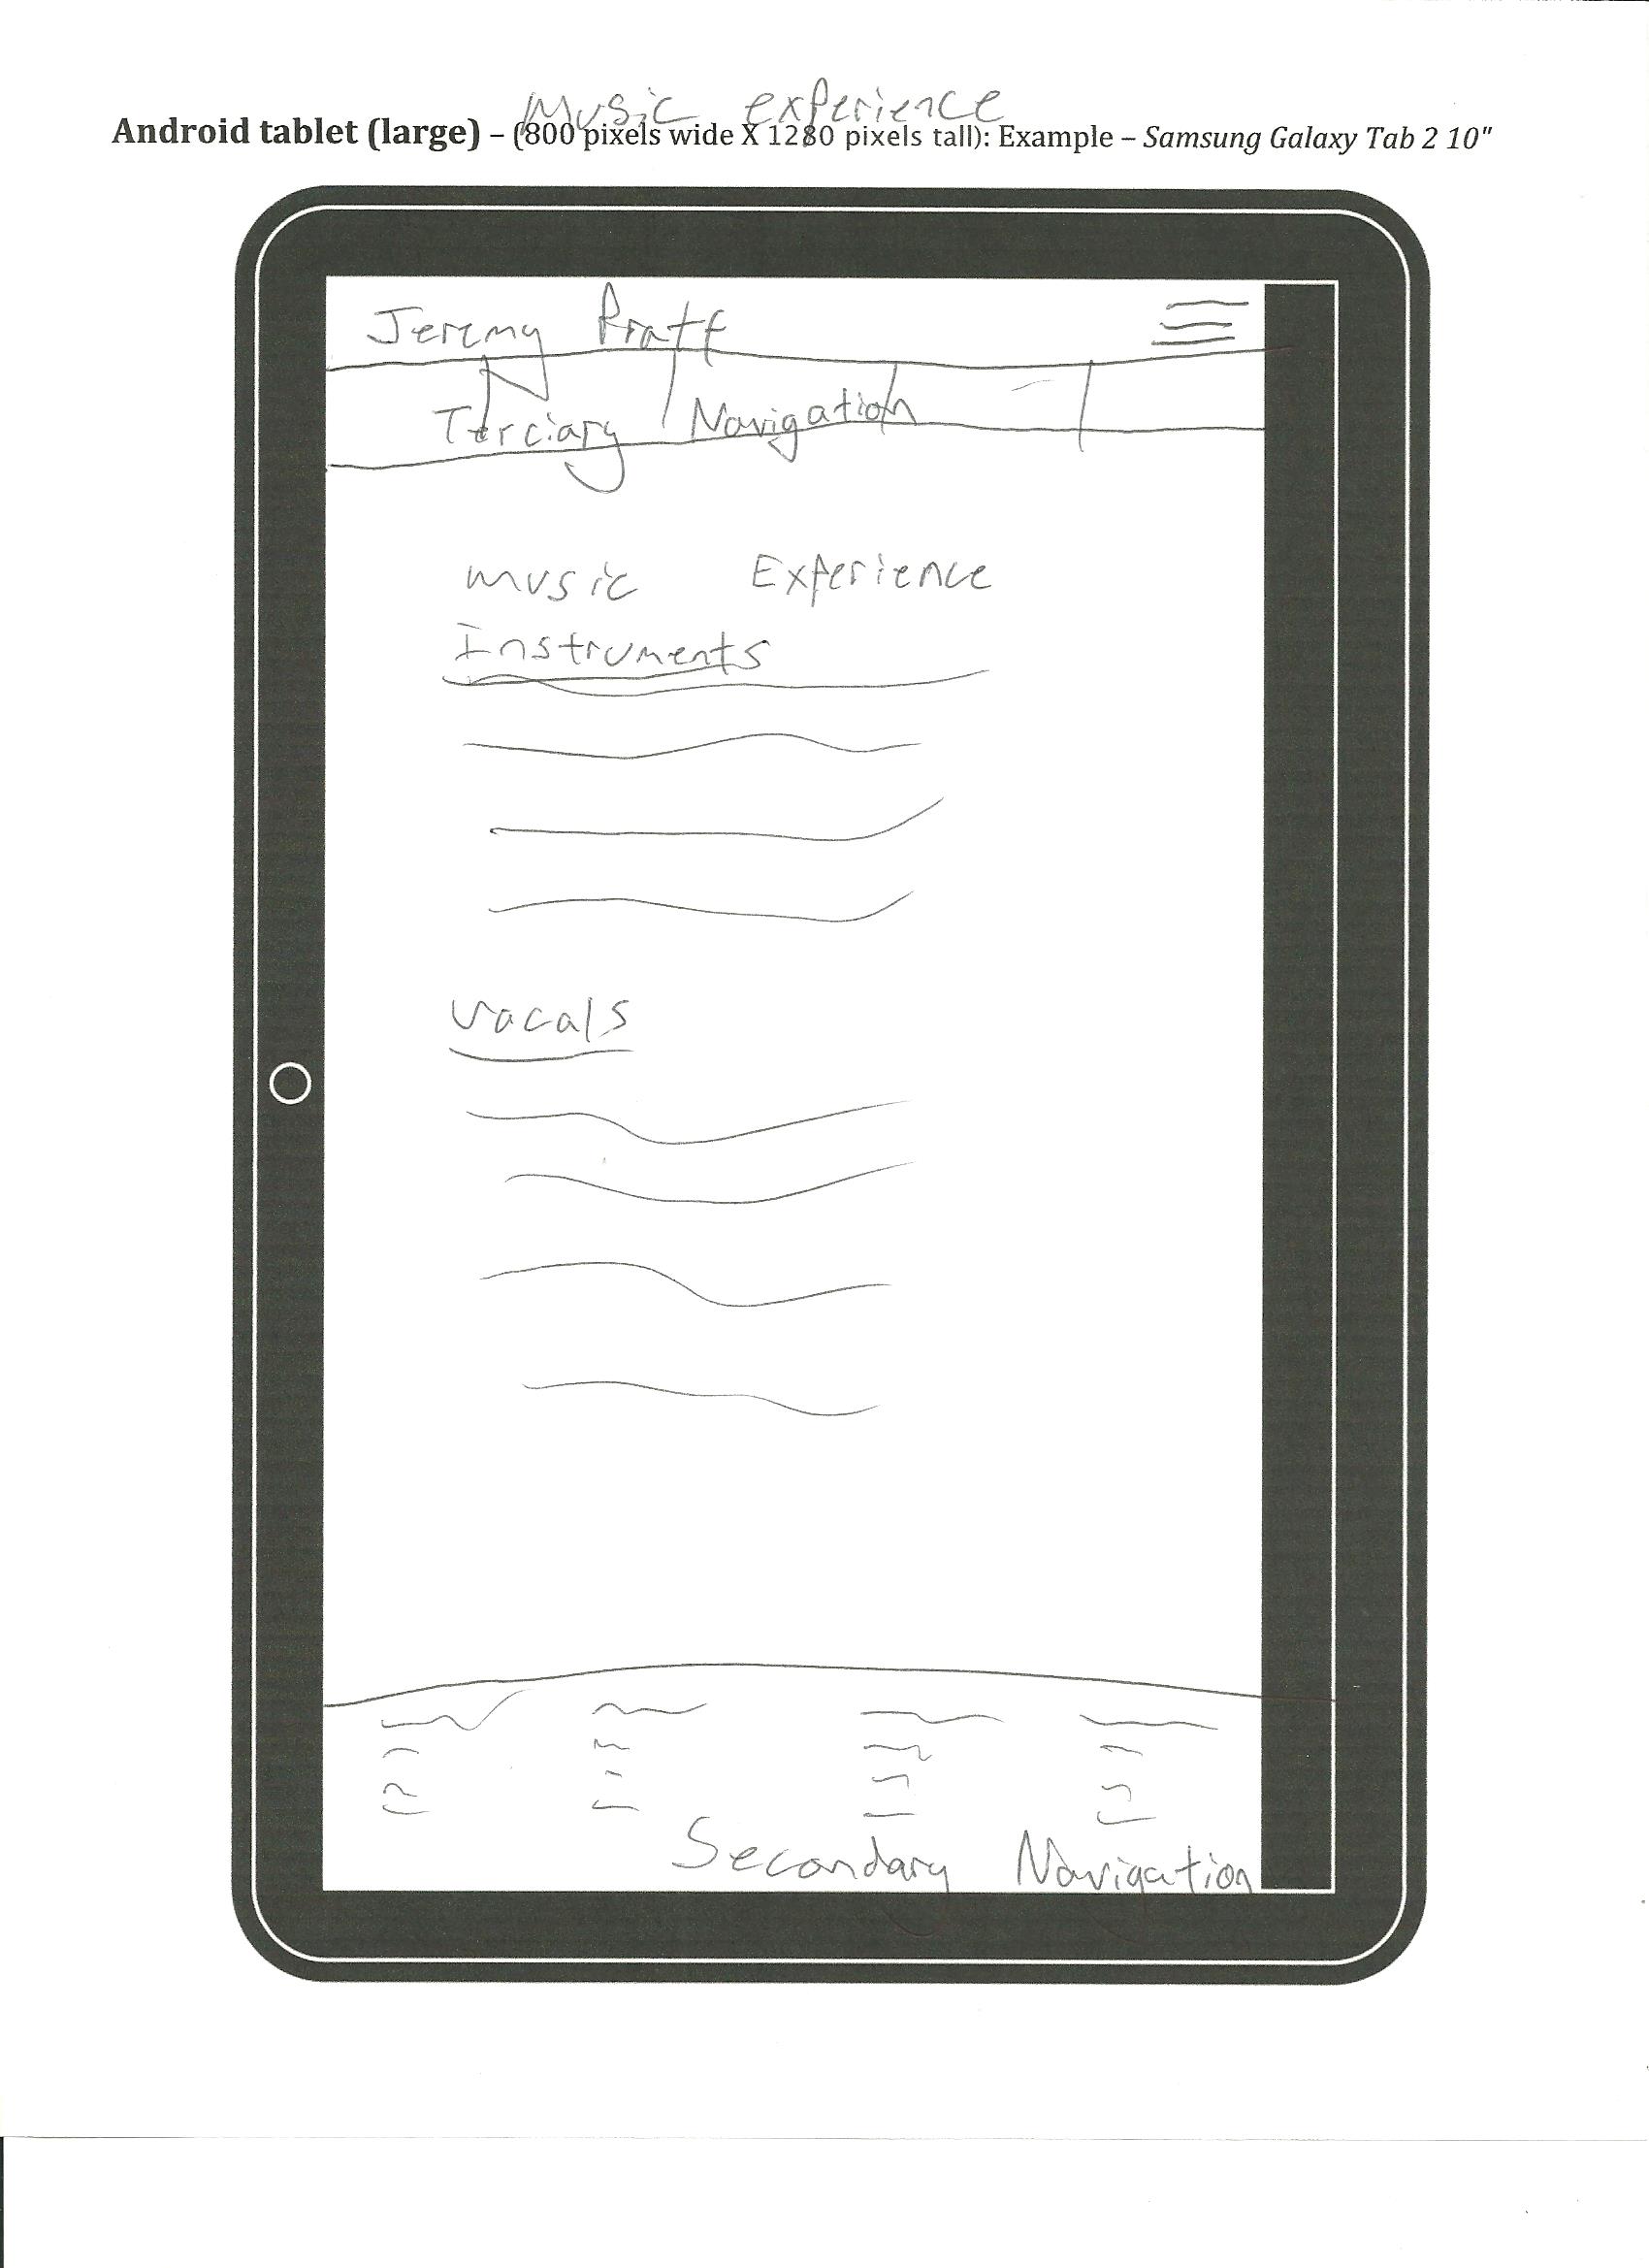 music experience
Android tablet (large) – (800 pixels wide X 1280 pixels tall): Example – Samsung Galaxy Tab 2 10"
Jeremy Pratt
Terciary Navigation
music Experience
Instruments
Vocals
Secondary Navigation